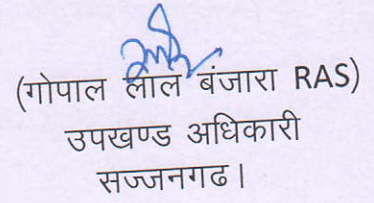 (गोपाल लाल बंजारा RAS)
उपखण्ड अधिकारी
सज्जनगढ।